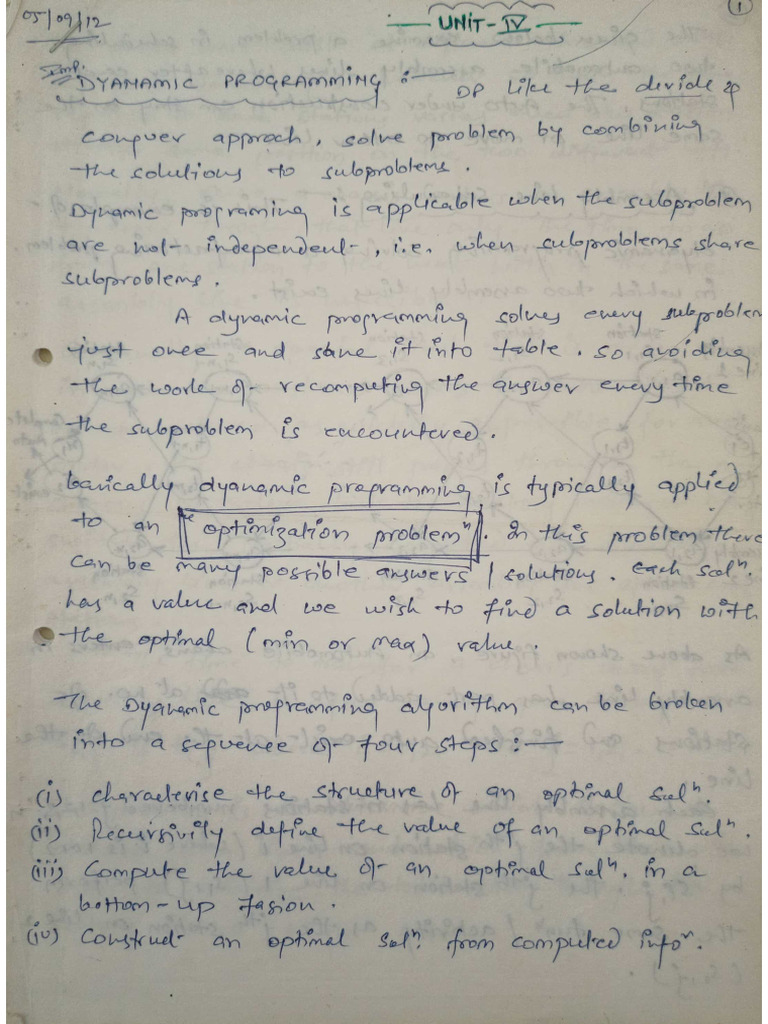 05/09/12
UNIT-IV
1
Imp.
DYANAMIC PROGRAMMING :— DP like the devide &
conquer approch, solve problem by combining
the solutions to subproblems.
Dynamic programing is applicable when the subproblem
are not independent, i.e. when subproblems share
subproblems.
A dynamic programming solves every subproblem
just once and save it into table. so avoiding
the work of recomputing the answer every time
the subproblem is encountered.
basically dyanamic programming is typically applied
to an "optimization problem". In this problem there
can be many possible answers / solutions. Each solⁿ.
has a value and we wish to find a solution with
the optimal (min or max) value.
The Dyanamic programming algorithm can be broken
into a sequence of four steps :—
(i) characterise the structure of an optimal solⁿ.
(ii) Recursivily define the value of an optimal solⁿ.
(iii) Compute the value of an optimal solⁿ. in a
bottom-up fasion.
(iv) Construct an optimal solⁿ. from computed infoⁿ.